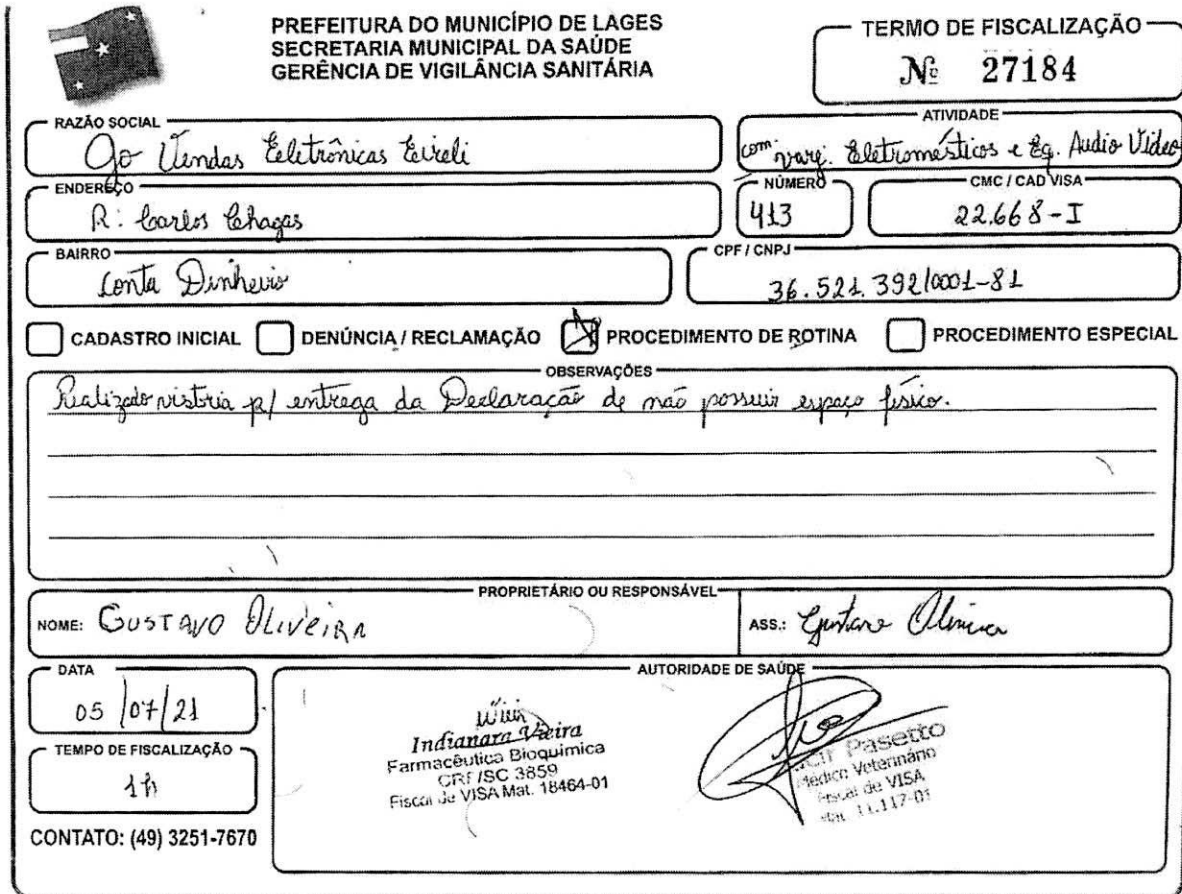 PREFEITURA DO MUNICÍPIO DE LAGES
SECRETARIA MUNICIPAL DA SAÚDE
GERÊNCIA DE VIGILÂNCIA SANITÁRIA
TERMO DE FISCALIZAÇÃO
Nº 27184
RAZÃO SOCIAL
Go Vendas Eletrônicas Eireli
ATIVIDADE
com. varej. Eletromésticos e Eq. Audio Vídeo
ENDEREÇO
R: Carlos Chagas
NÚMERO
413
CMC / CAD VISA
22.668-I
BAIRRO
Conta Dinheiro
CPF / CNPJ
36.521.392/0001-81
CADASTRO INICIAL
DENÚNCIA / RECLAMAÇÃO
X PROCEDIMENTO DE ROTINA
PROCEDIMENTO ESPECIAL
OBSERVAÇÕES
Realizado vistoria p/ entrega da Declaração de não possuir espaço físico.
PROPRIETÁRIO OU RESPONSÁVEL
NOME: GUSTAVO OLIVEIRA
ASS.: Gustavo Oliveira
DATA
05/07/21
TEMPO DE FISCALIZAÇÃO
1h
CONTATO: (49) 3251-7670
AUTORIDADE DE SAÚDE
Indianara Vieira
Farmacêutica Bioquímica
CRF/SC 3859
Fiscal de VISA Mat. 18464-01
Pasetto
Médico Veterinário
Fiscal de VISA
Mat. 11.117-01